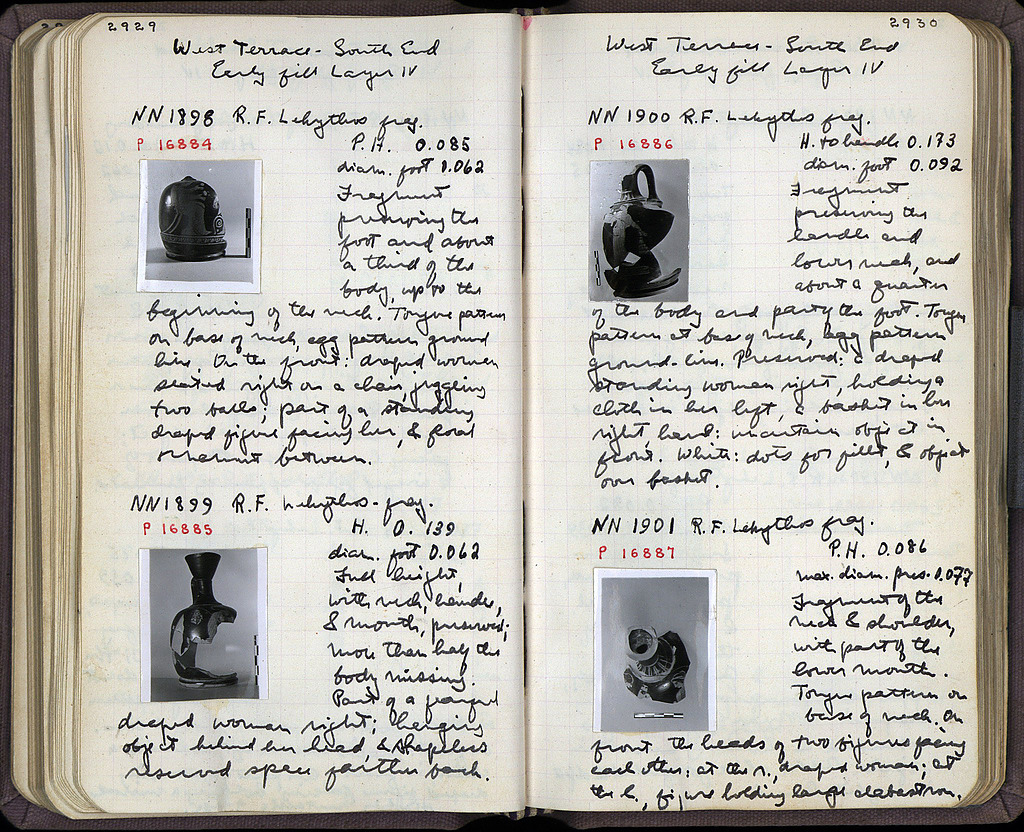 2929
West Terrace - South End
Early fill Layer IV
NN 1898 R.F. Lekythos frag.
P 16884
P.H. 0.085
diam. foot 0.062
Fragment
preserving the
foot and about
a third of the
body, up to the
beginning of the neck. Tongue pattern
on base of neck, egg pattern ground
line. On the front: draped woman
seated right on a chair, juggling
two balls; part of a standing
draped figure facing her, & floral
ornament between.
NN 1899 R.F. Lekythos - frag.
P 16885
H. 0.139
diam. foot 0.062
Full height,
with neck, handle,
& mouth, preserved;
more than half the
body missing.
Part of a
draped woman right; hanging
object behind her head, & shapeless
reserved space farther back.
2930
West Terrace - South End
Early fill Layer IV
NN 1900 R.F. Lekythos frag.
P 16886
H. to handle 0.173
diam. foot 0.092
Fragment
preserving the
handle and
lower neck, and
about a quarter
of the body and part of the foot. Tongue
pattern at base of neck, egg pattern
ground-line. Preserved: a draped
standing woman right, holding a
cloth in her left, a basket in her
right hand: uncertain object in
front. White: dots for fillet, & object
over basket.
NN 1901 R.F. Lekythos frag.
P 16887
P.H. 0.086
max. diam. pres. 0.077
Fragment of the
neck & shoulder,
with part of the
lower mouth.
Tongue pattern on
base of neck. On
front the heads of two figures facing
each other: at the r., draped woman; at
the l., figure holding large alabastron.